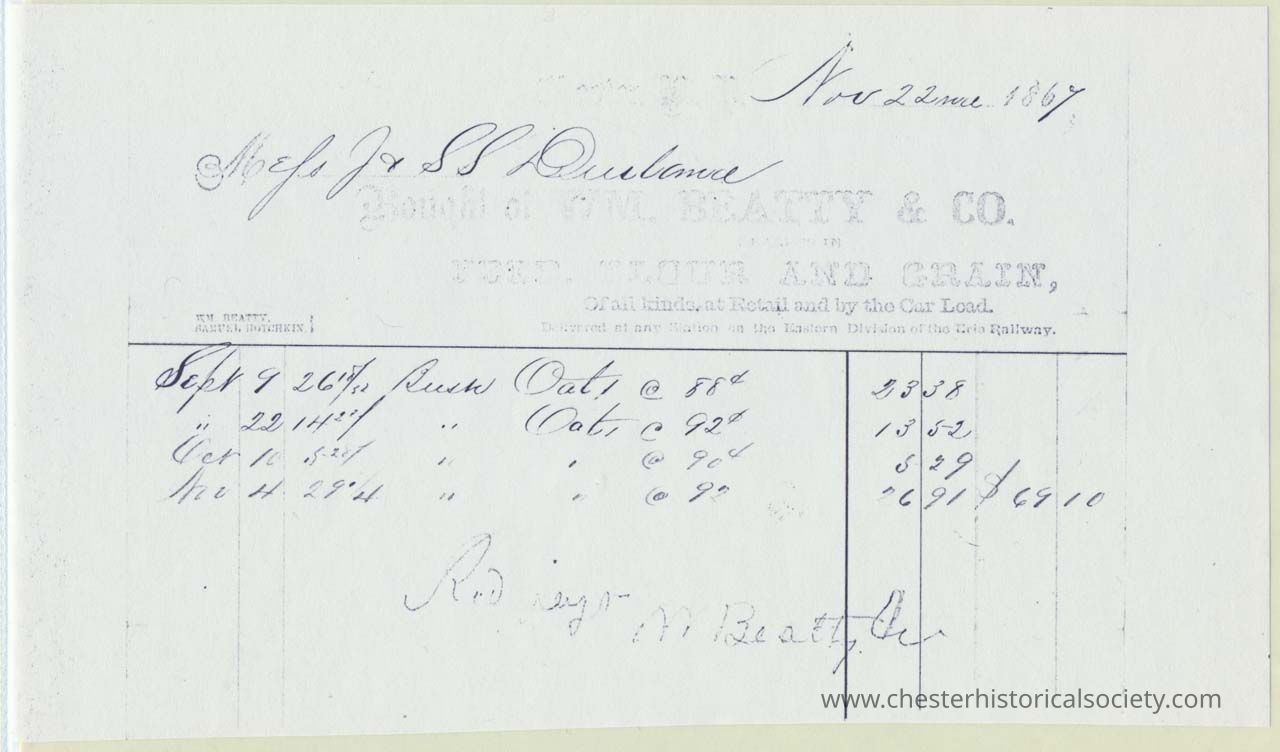 Nov 22nd 1867
Mess J & SS Durland
Bought of WM. BEATTY & CO.
DEALERS IN
FEED, FLOUR AND GRAIN,
Of all kinds, at Retail and by the Car Load.
WM. BEATTY,
SAMUEL HOTCHKIN.
Delivered at any Station on the Eastern Division of the Erie Railway.
Sept 9 26 Bush Oats @ 88¢ 23 38
" 22 14 " Oats @ 92¢ 13 52
Oct 10 " " @ 90¢ 5 29
Nov 4 29 1/4 " " @ 92 26 91 $ 69 10
Recd payt
W Beatty & Co
www.chesterhistoricalsociety.com